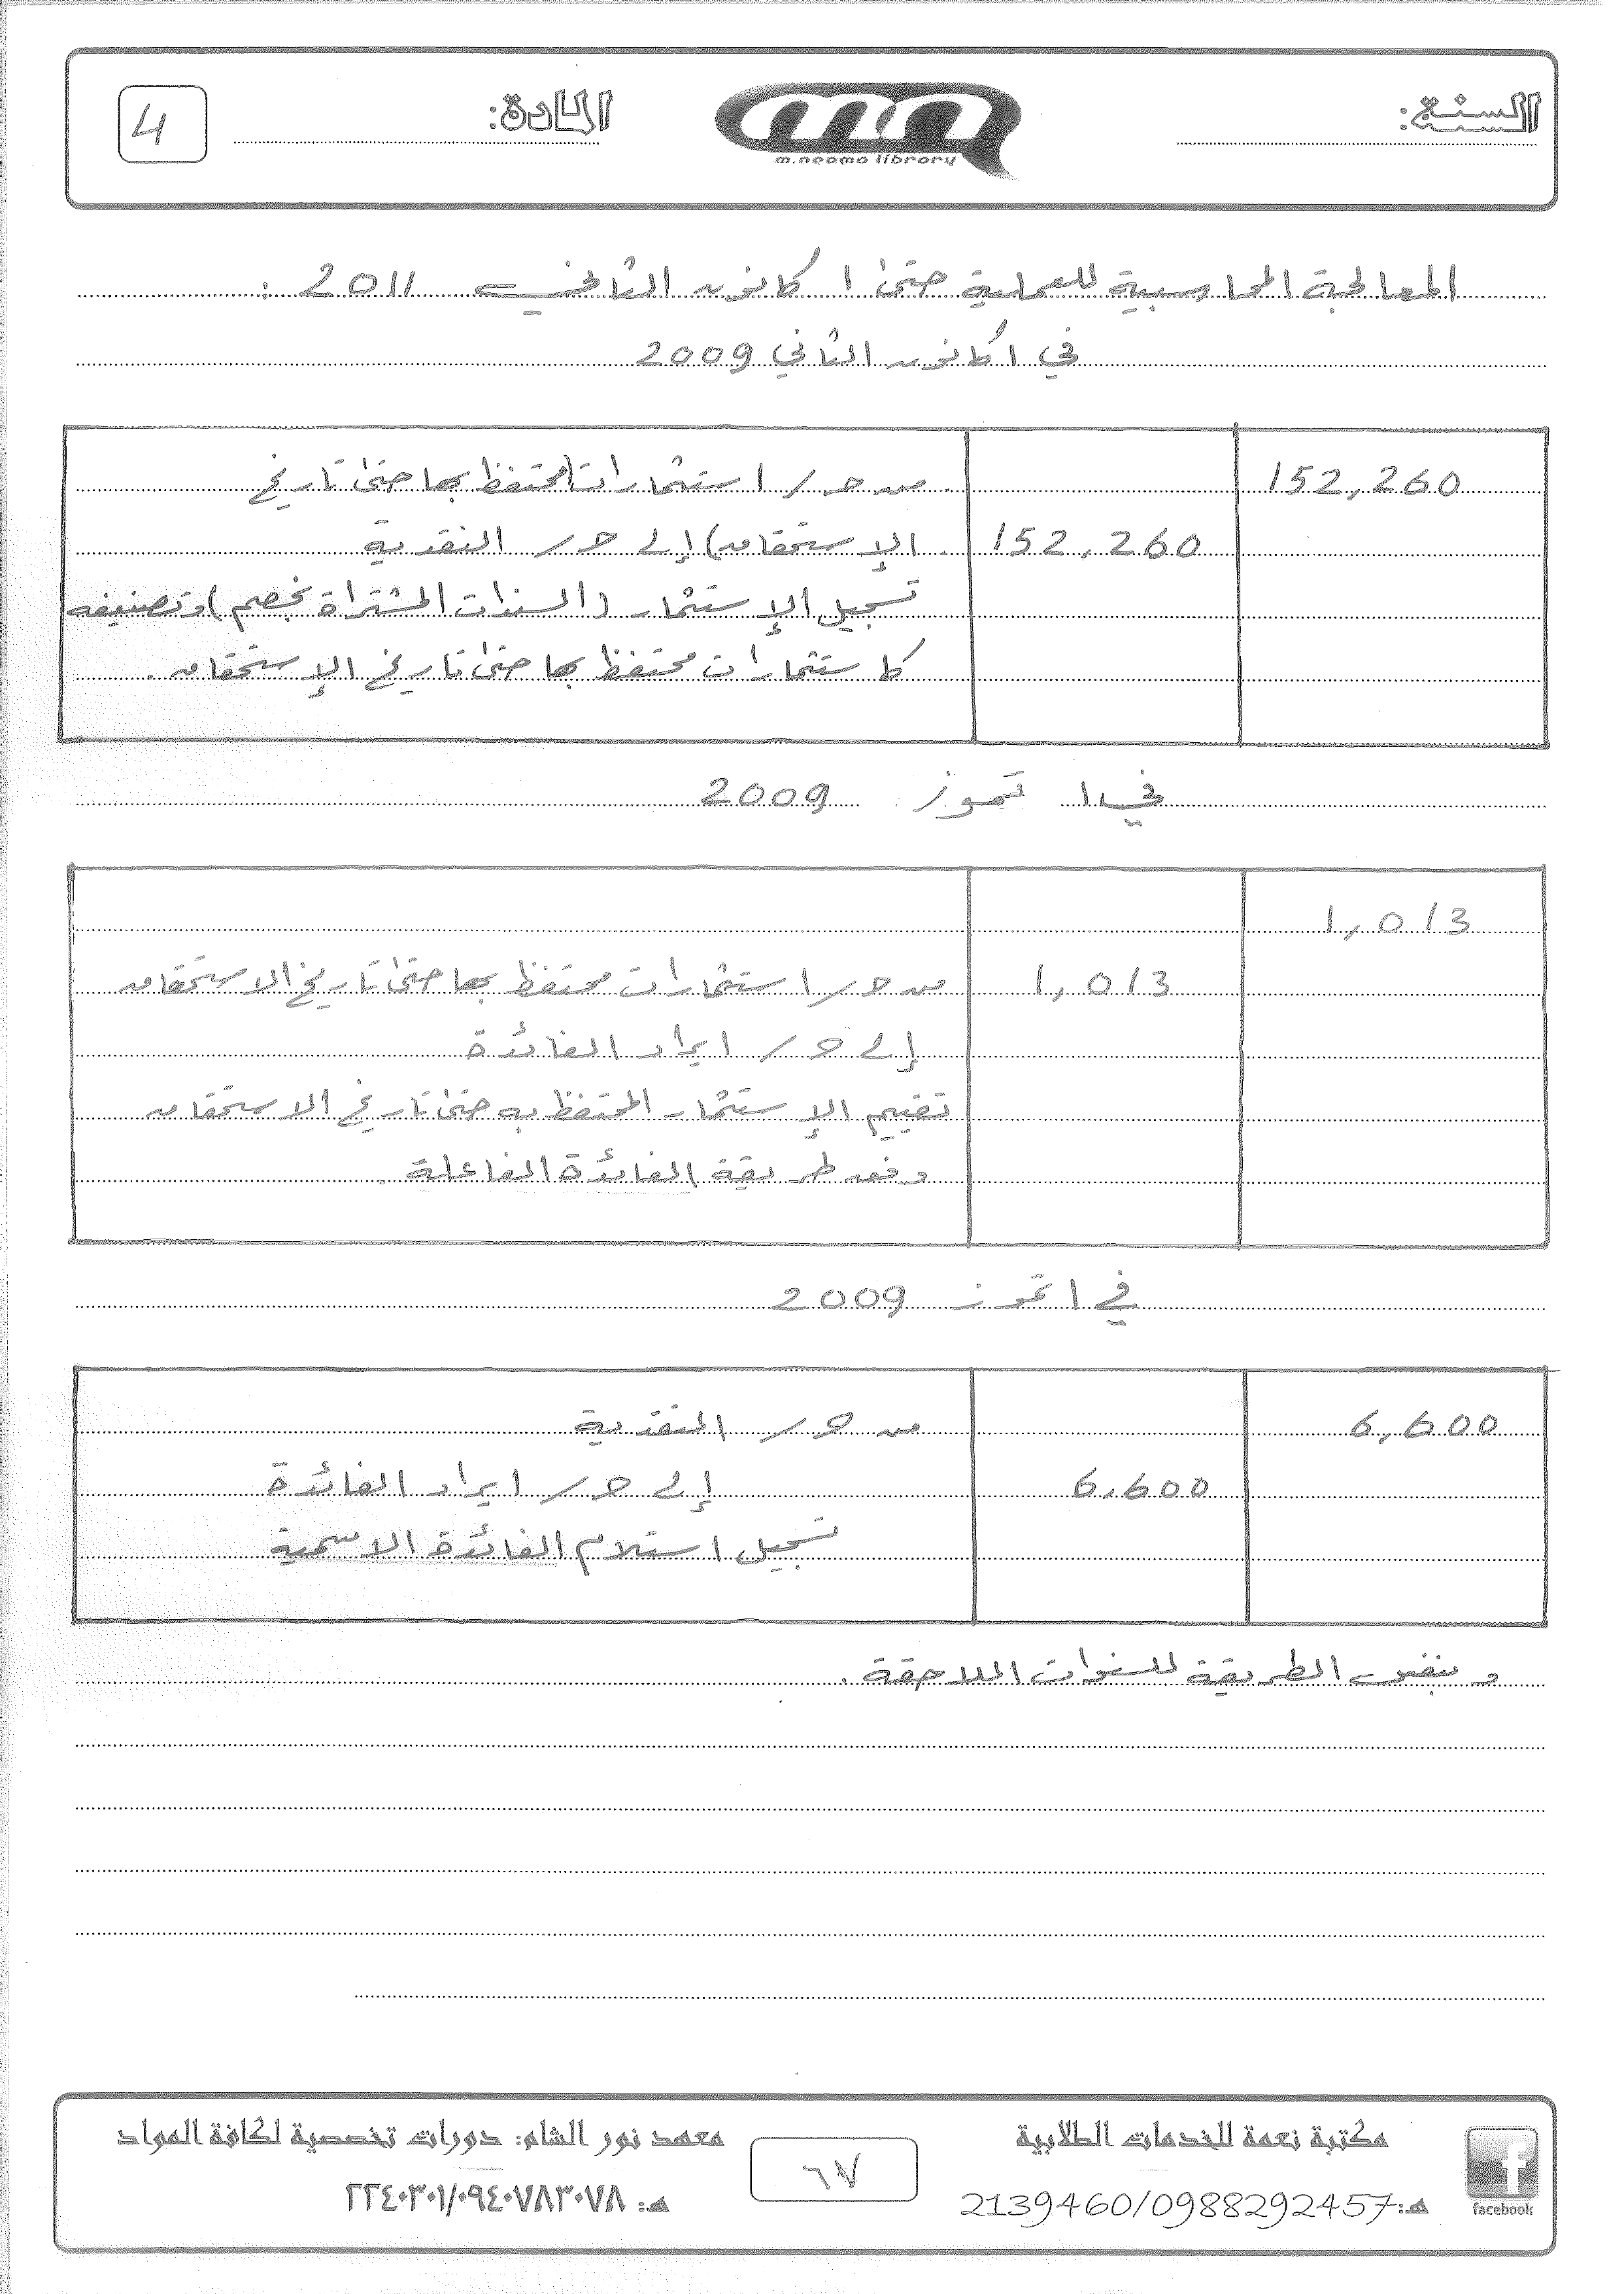 السنة:
m.neama library
المادة:
4
المعالجة المحاسبية للعملية حتى 1 كانون الثاني 2011 :
في 1 كانون الثاني 2009
152,260 من حـ/ استثمارات (محتفظ بها حتى تاريخ
152,260 الإستحقاق) إلى حـ/ النقدية
تسجيل الإستثمار (السندات المشتراة بخصم) وتصنيفه
كاستثمارات محتفظ بها حتى تاريخ الإستحقاق.
في 1 تموز 2009
1,013
1,013 من حـ/ استثمارات محتفظ بها حتى تاريخ الاستحقاق
إلى حـ/ ايراد الفائدة
تقييم الإستثمار المحتفظ به حتى تاريخ الاستحقاق
وفق طريقة الفائدة الفاعلة.
في 1 تموز 2009
6,600 من حـ/ النقدية
6,600 إلى حـ/ ايراد الفائدة
تسجيل استلام الفائدة الاسمية
وبنفس الطريقة للسنوات اللاحقة.
مكتبة نعمة للخدمات الطلابية
هـ: 2139460/0988292457
facebook
٦٧
معهد نور الشام: دورات تخصصية لكافة المواد
هـ: ٢٢٤٠٣٠١/٠٩٤٠٧٨٣٠٧٨